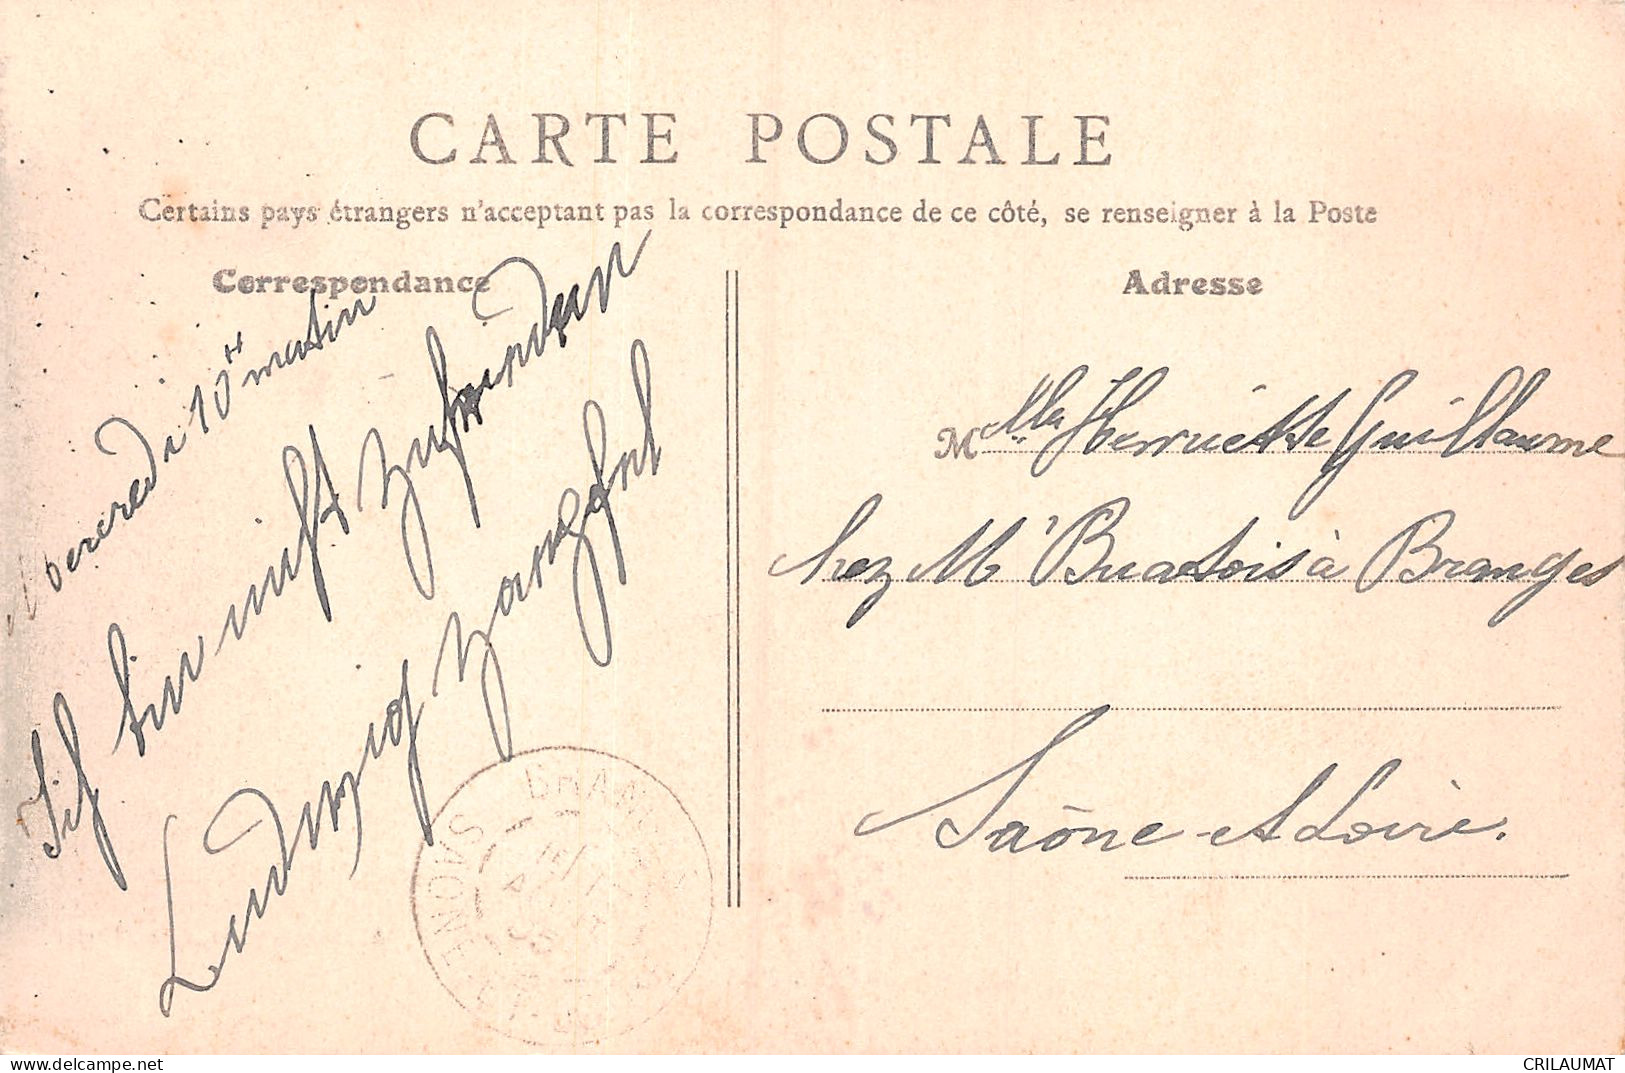 CARTE POSTALE
Certains pays étrangers n'acceptant pas la correspondance de ce côté, se renseigner à la Poste
Correspondance
Adresse
Mercredi 10 H matin
Ich bin nicht zufrieden
Ludwig
Mlle Henriette Guillaume
chez Mr Buatois à Branges
Saône-et-Loire.
BRANGES
SAONE-ET-
CRILAUMAT